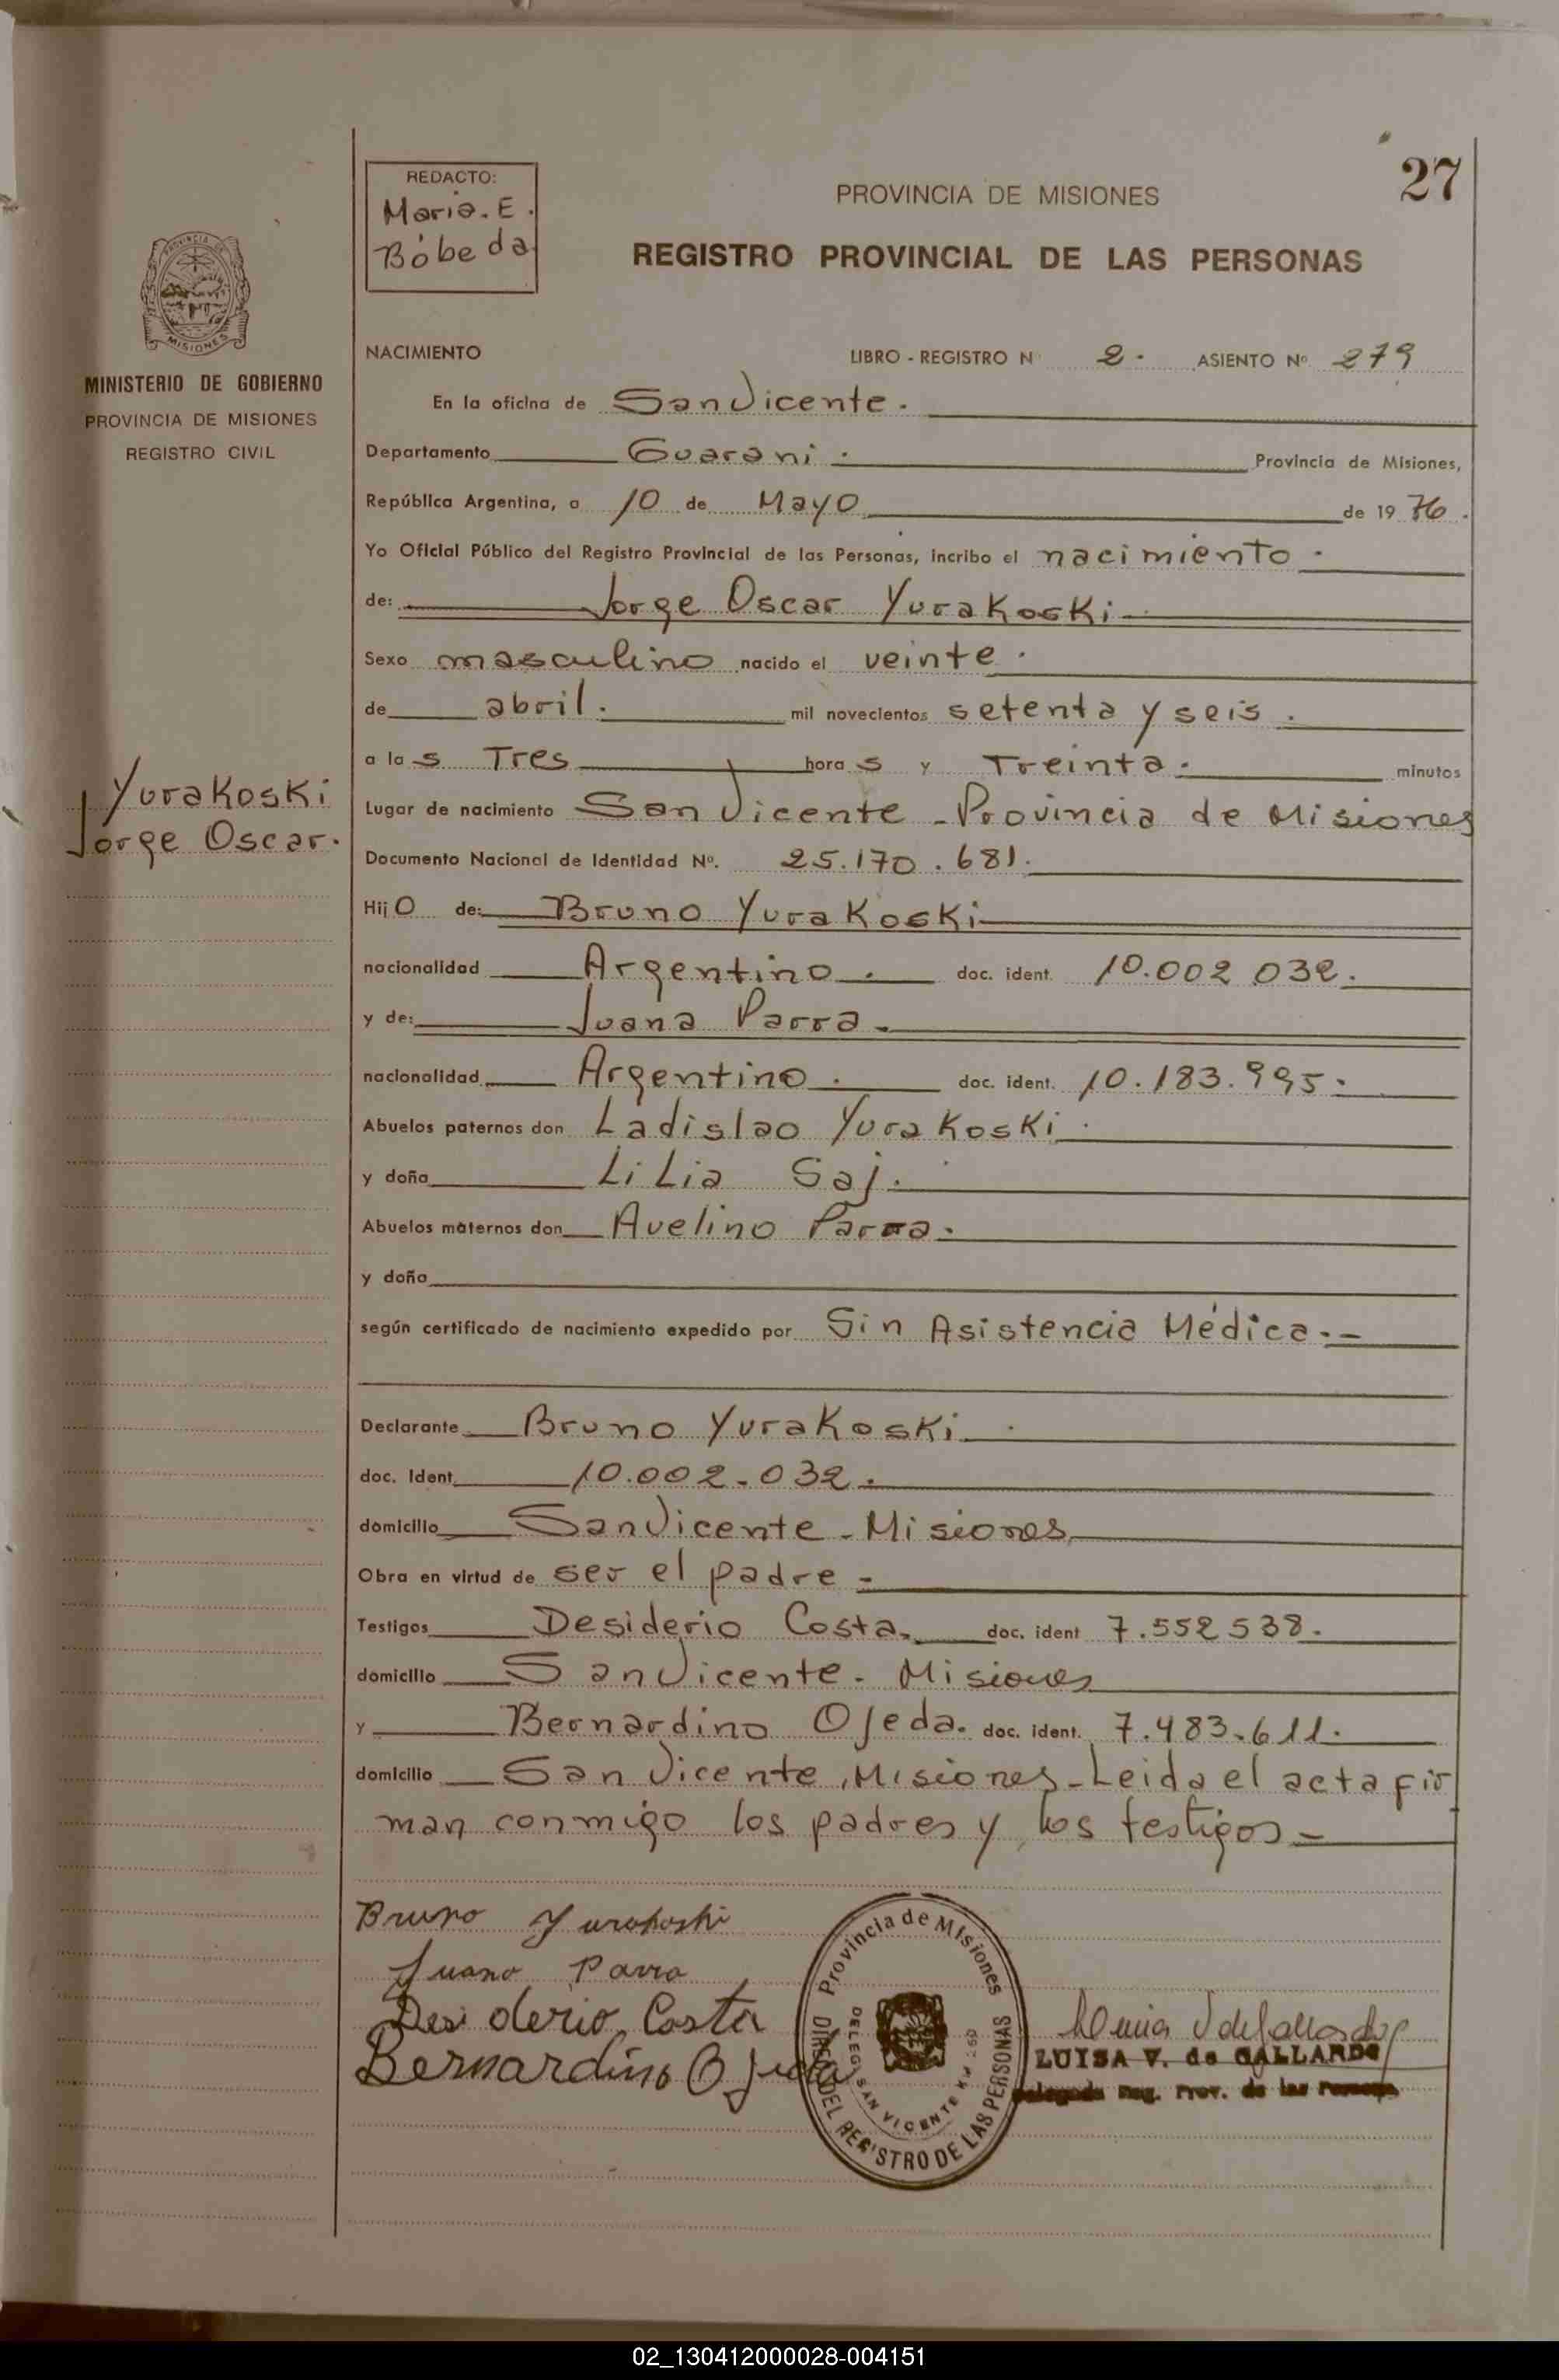 27
REDACTO:
Maria. E.
Bóbeda
PROVINCIA DE MISIONES
REGISTRO PROVINCIAL DE LAS PERSONAS
PROVINCIA DE
MISIONES
MINISTERIO DE GOBIERNO
PROVINCIA DE MISIONES
REGISTRO CIVIL
NACIMIENTO LIBRO - REGISTRO Nº 2. ASIENTO Nº 279
En la oficina de San Vicente.
Departamento Guarani. Provincia de Misiones,
República Argentina, a 10 de Mayo de 19 76.
Yo Oficial Público del Registro Provincial de las Personas, incribo el nacimiento.
de: Jorge Oscar Yurakoski
Sexo masculino nacido el veinte.
de abril. mil novecientos setenta y seis.
a la s Tres hora s y Treinta. minutos
Yurakoski
Jorge Oscar.
Lugar de nacimiento San Vicente - Provincia de Misiones
Documento Nacional de Identidad Nº. 25.170.681.
Hij O de: Bruno Yurakoski
nacionalidad Argentino. doc. ident. 10.002 032.
y de: Juana Parra.
nacionalidad Argentino. doc. ident. 10.183.995.
Abuelos paternos don Ladislao Yurakoski.
y doña LiLia Saj.
Abuelos maternos don Avelino Parra.
y doña
según certificado de nacimiento expedido por Sin Asistencia Médica.-
Declarante Bruno Yurakoski.
doc. Ident. 10.002.032.
domicilio San Vicente - Misiones
Obra en virtud de ser el padre -
Testigos Desiderio Costa. doc. ident 7.552 538.
domicilio San Vicente - Misiones
y Bernardino Ojeda. doc. ident. 7.483.611.
domicilio San Vicente, Misiones - Leida el acta fir
man conmigo los padres y los testigos -
Bruno Yurakoski
Juana Parra
Desiderio Costa
Bernardino Ojeda
Provincia de Misiones
DIREC. DEL REGISTRO DE LAS PERSONAS
DELEG. SAN VICENTE
LUISA V. de GALLARDO
Delegada Reg. Prov. de las Personas
02_130412000028-004151